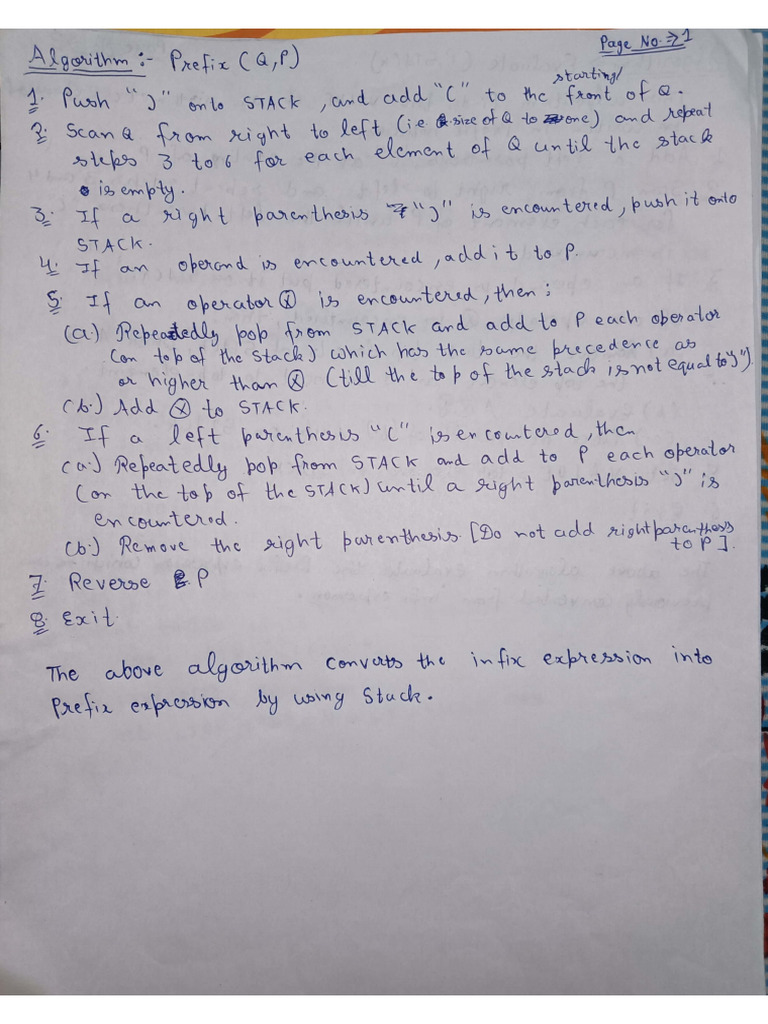 Page No → 1
Algorithm :- Prefix (Q,P)
starting/
1. Push ")" onto STACK, and add "(" to the front of Q.
2. Scan Q from right to left (i.e. size of Q to one) and repeat
steps 3 to 6 for each element of Q until the stack
is empty.
3. If a right parenthesis ")" is encountered, push it onto
STACK.
4. If an operand is encountered, add it to P.
5. If an operator ⊗ is encountered, then:
(a.) Repeatedly pop from STACK and add to P each operator
(on top of the stack) which has the same precedence as
or higher than ⊗ (till the top of the stack is not equal to ")")
(b.) Add ⊗ to STACK.
6. If a left parenthesis "(" is encountered, then
(a.) Repeatedly pop from STACK and add to P each operator
(on the top of the STACK) until a right parenthesis ")" is
encountered.
(b.) Remove the right parenthesis. [Do not add right parenthesis
to P].
7. Reverse P
8. Exit.
The above algorithm converts the infix expression into
Prefix expression by using Stack.